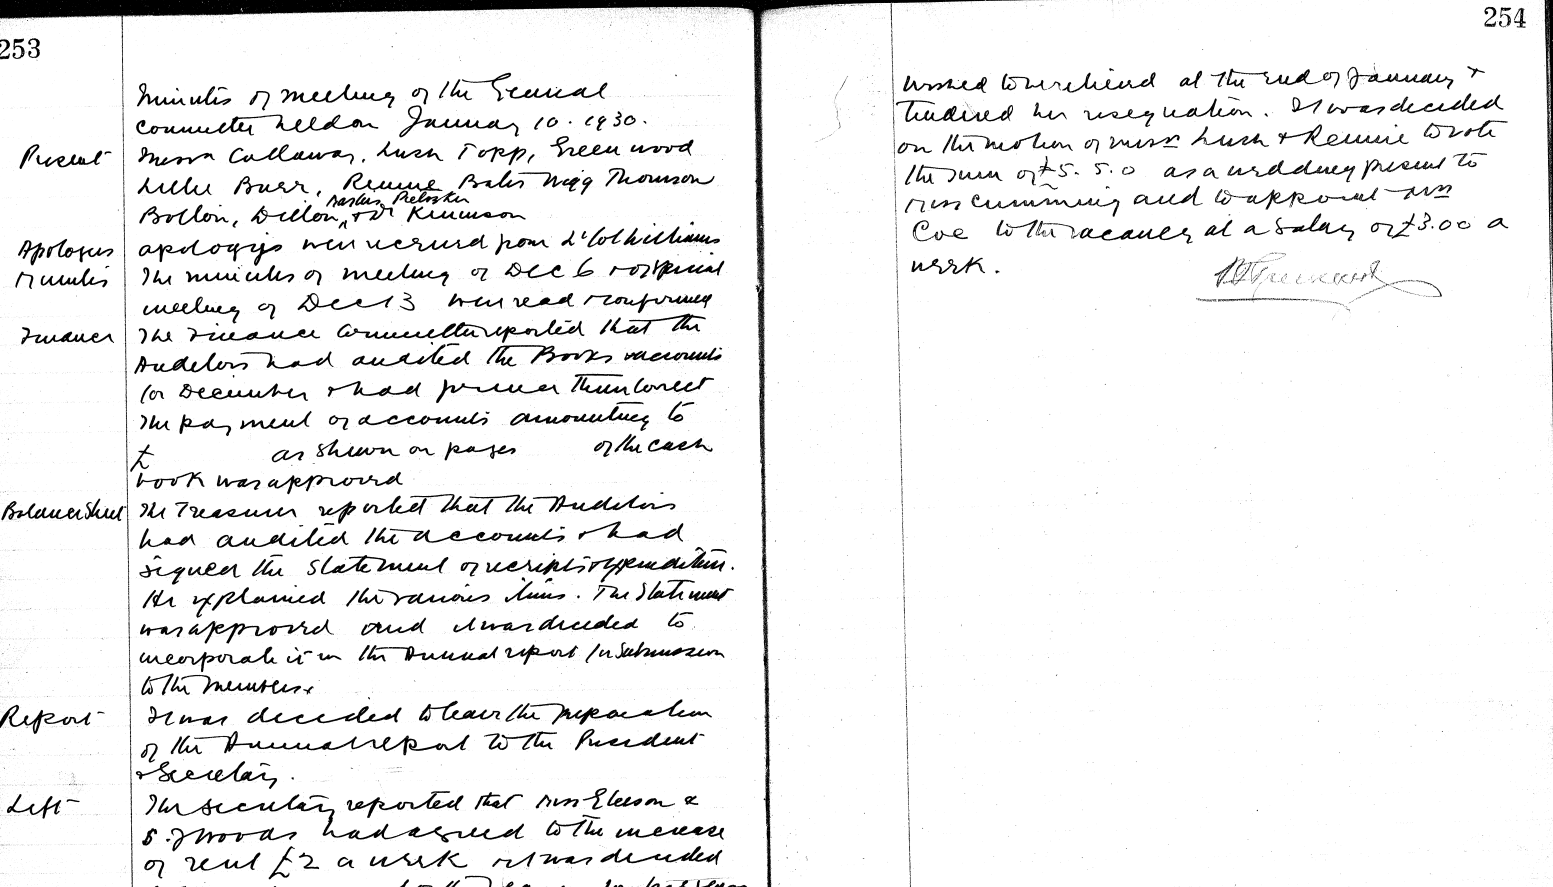 253
Minutes of meeting of the General
Committee held on January 10. 1930.
Present Messrs Callaway, Lush Topp, Greenwood
Lillie Burr, Rennie Bates Wigg Thomson
Barlus
Bolton, Dillon, & Dr Kinmson
Apologies apologies were received from Lt Col Williams
Minutes The minutes of meeting of Dec 6 & of special
meeting of Dec 13 were read & confirmed
Finance The Finance Committee reported that the
Auditors had audited the Books & accounts
for December & had found them correct
The payment of accounts amounting to
£ as shewn on pages of the cash
book was approved
Balance Sheet The Treasurer reported that the Auditors
had audited the accounts & had
signed the statement of receipts & expenditure.
He explained the various items. The statement
was approved and it was decided to
incorporate it in the Annual report for submission
to the members.
Report It was decided to leave the preparation
of the Annual report to the President
& Secretary.
Lift The Secretary reported that Miss Eleeson &
S. J Woods had agreed to the increase
of rent £2 a week & it was decided
254
wished to be relieved at the end of January &
tendered her resignation. It was decided
on the motion of Messrs Lush & Rennie to vote
the sum of £5. 5. 0 as a wedding present to
Miss Cumming and to appoint Miss
Coe to the vacancy at a salary of £3.00 a
week.